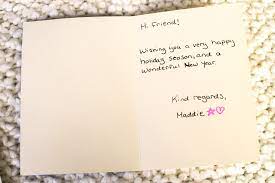 Hi Friend!
Wishing you a very happy
holiday season, and a
wonderful New Year.
Kind regards,
Maddie